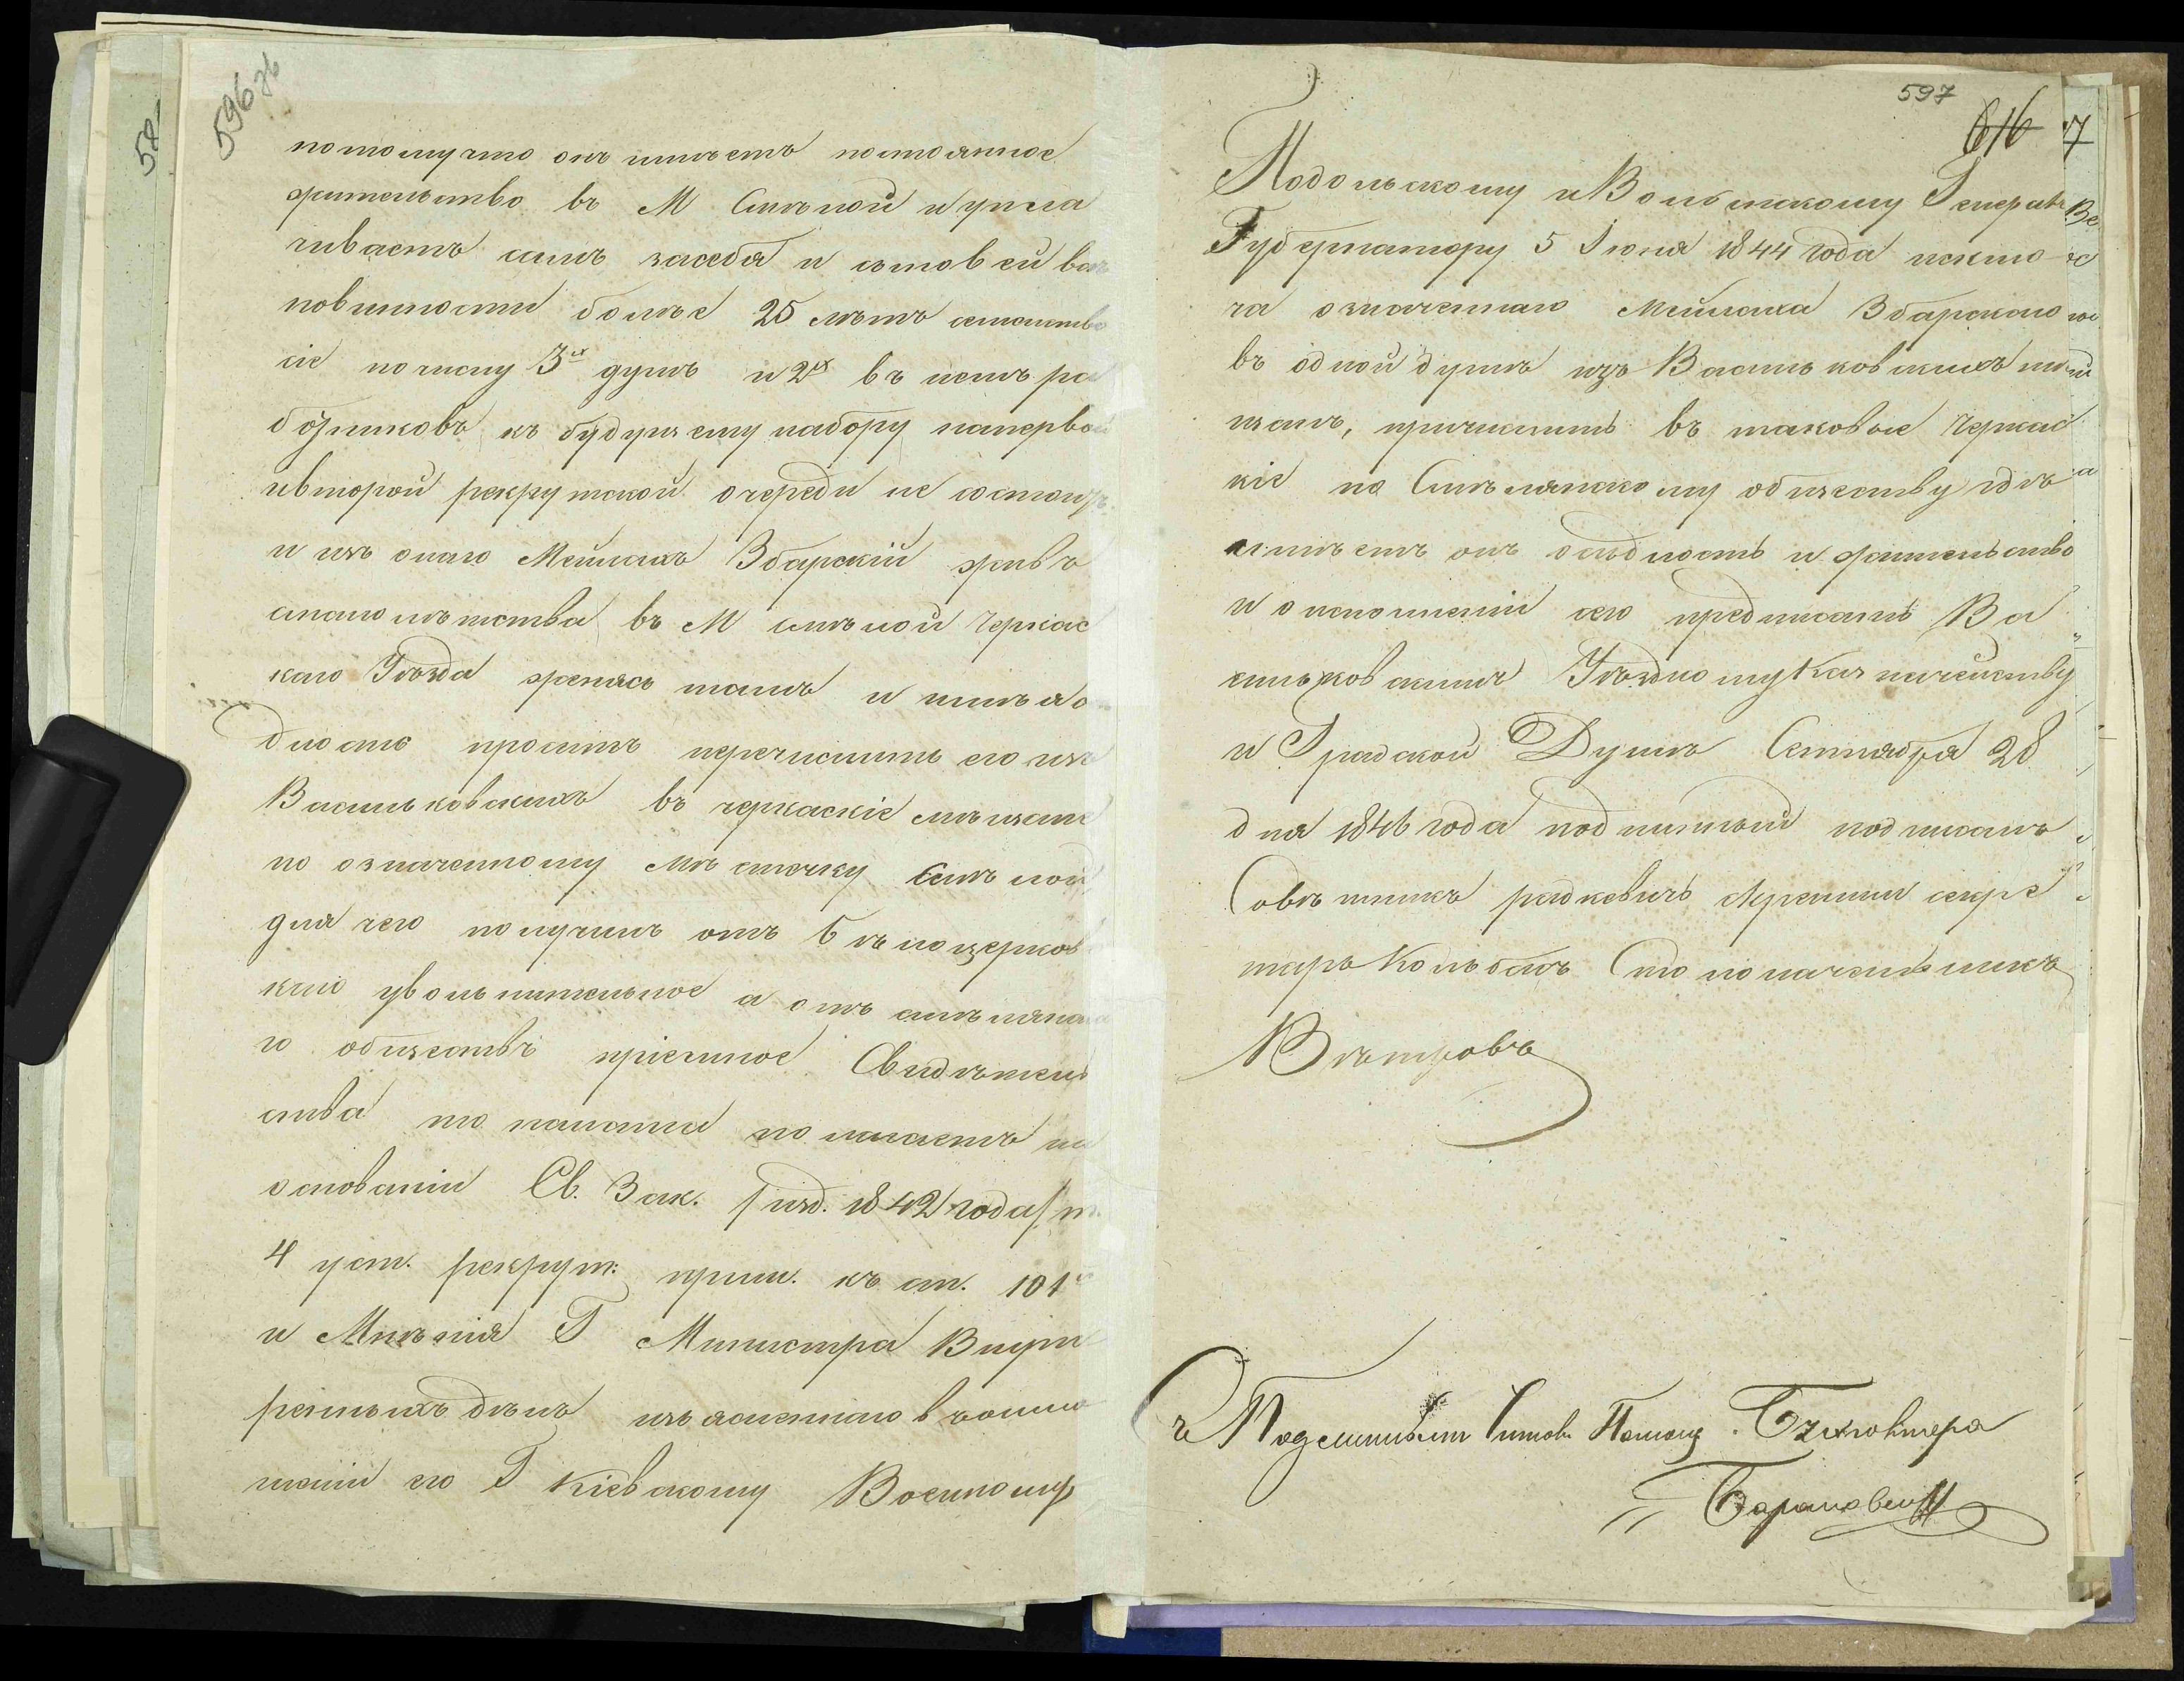 596 зв
потому что онъ имѣетъ постоянное
жительство въ М Смѣлой и упла
чиваетъ самъ засебя и сыновей вси
повинности болѣе 25 лѣтъ семейство
сіе по числу 3х душъ и 2х въ немъ ра
ботниковъ къ будущему набору напервой
ивторой рекрутской очереди не состоитъ
и изъ онаго Мейлахъ Збарскій живъ
смалолѣтства въ М Смѣлой Черкас
каго Уѣзда женясь тамъ и имѣя о
дность проситъ перечислить его изъ
Васильковскихъ въ черкаскіе мѣщане
по означенному мѣстечку Смѣлой
для чего получилъ отъ Бѣлоцерков
каго увольнительное а отъ смѣлянска
го обществъ пріемное Свидѣтель
ства то палата полагаетъ на
основаніи Св. Зак. /изд. 1842 года/ т.
4 уст. рекрут: прим. къ ст. 101
и Мнѣнія Г Министра Внут
реннихъ дѣлъ изъясненнаго въ отно
шеніи его Г Кіевскому Военному
597
616
Подольскому и Волынскому Генералъ
Губернатору 5 Іюня 1844 года исклю
ча означеннаго Мейлаха Збарскаго
въ одной душѣ изъ Васильковскихъ мѣ
щанъ, причислить въ таковые Черкас
кіе по Смѣлянскому обществу гдѣ
имѣетъ онъ осѣдлость и жительство
и о исполненіи сего предписать Ва
сильковскимъ Уѣздному Казначейству
и Градской Думѣ Сентября 28
дня 1846 года подлинный подписалъ
Совѣтникъ радкевичъ скрепили секре
тарь Колбасъ Столоначальникъ
Вѣтровъ
Съ Подлиннымъ читалъ Помощ. Бухгалтера
Барановскій